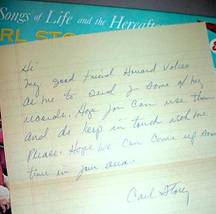 Songs of Life and the Hereafter
RL STO
Hi
My good friend Howard
as me to send you some of my
records. Hope you can use them
and do keep in touch with me
Please. Hope we can come up some
time in your area.
Carl Story